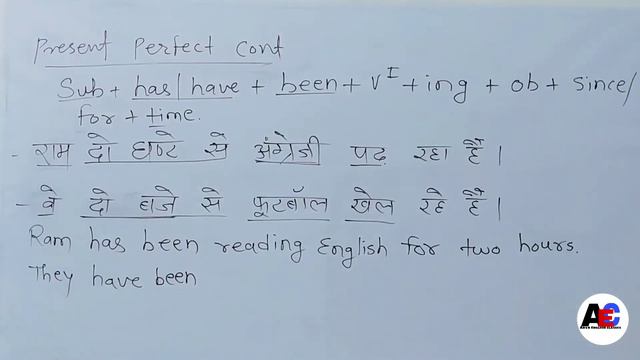 Present Perfect Cont
Sub + has/have + been + V^I + ing + ob + since/
for + time.
- राम दो घण्टे से अंग्रेजी पढ़ रहा है।
- वे दो बजे से फूटबॉल खेल रहे हैं।
Ram has been reading English for two hours.
They have been
AEC